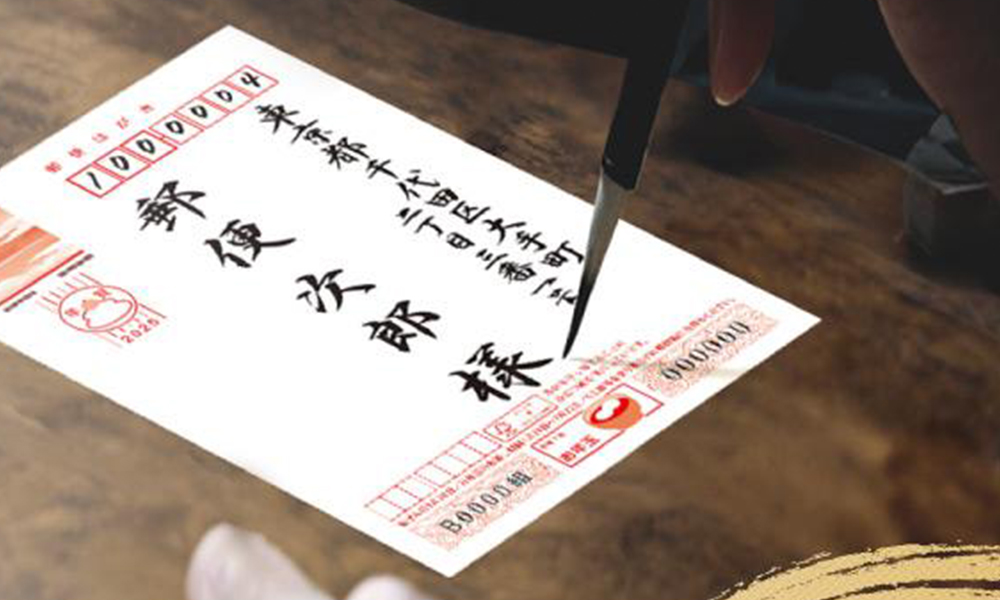 郵便はがき
1000004
東京都千代田区大手町
二丁目三番一号
郵便次郎様
年賀
2025
お年玉
B0000組
000000